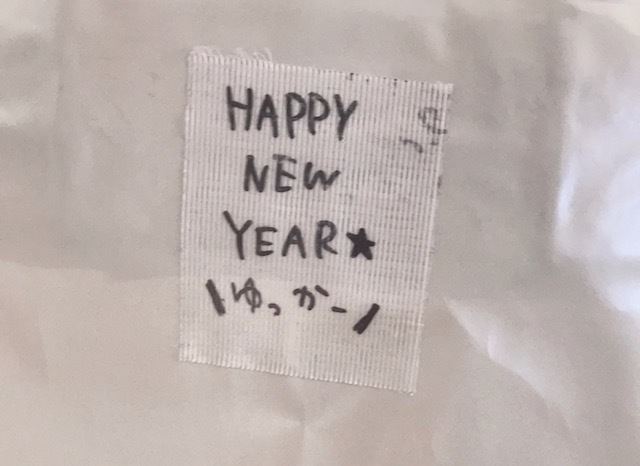 HAPPY
NEW
YEAR★
\ゆっかー/